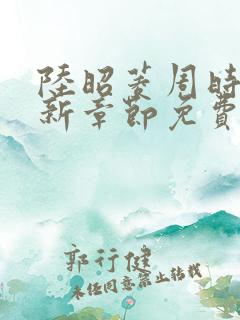 陸昭菱周時
新章節免費
郭行健
未經同意禁止轉載